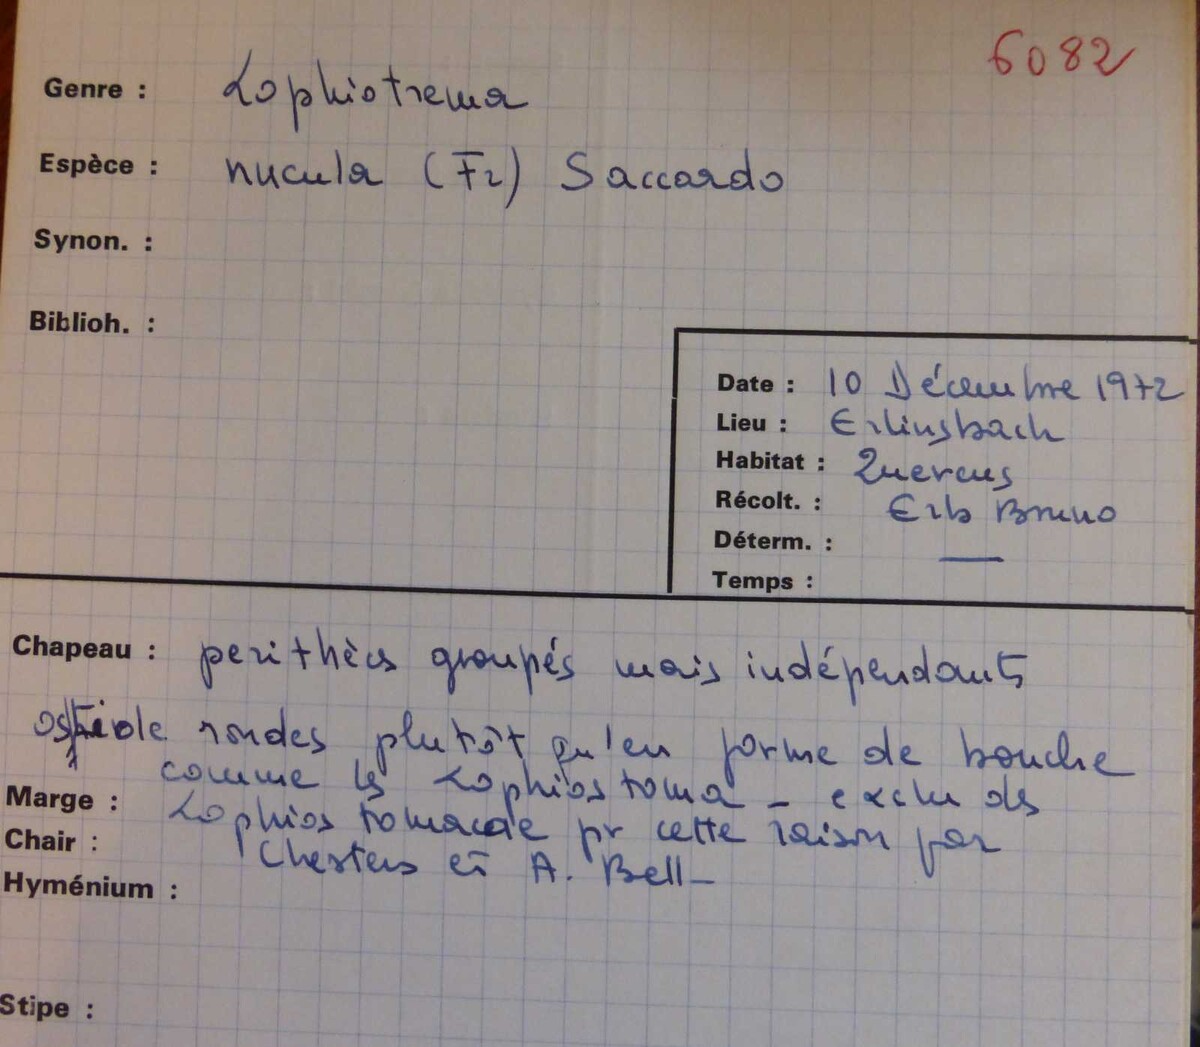 6082
Genre : Lophiotrema
Espèce : nucula (Fr) Saccardo
Synon. :
Biblioh. :
Date : 10 Décembre 1972
Lieu : Erlinsbach
Habitat : Quercus
Récolt. : Erb Bruno
Déterm. : —
Temps :
Chapeau : perithèces groupés mais indépendants
ostiole rondes plutôt qu'en forme de bouche
comme les Lophiostoma - exclu des
Marge : Lophiostomacae pr cette raison par
Chair : Chesters et A. Bell -
Hyménium :
Stipe :